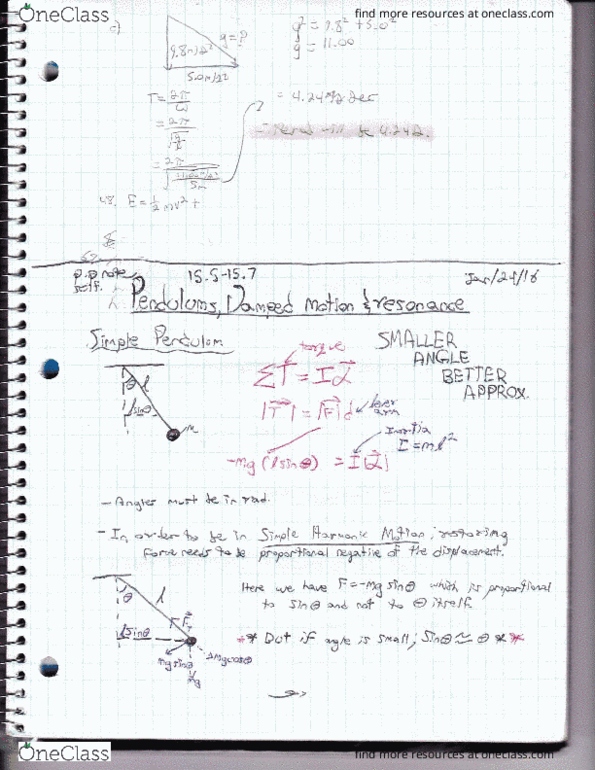 OneClass
find more resources at oneclass.com
c)
9.8m/s²
g=?
5.0m/s²
g² = 9.8² + 5.0²
g = 11.00
T = 2π/ω
= 2π/√(g/l)
= 2π/√(11.00m/s²/5m)
= 4.24
be 4.24s.
48. E = ½mv² +
p.p note
self.
15.5-15.7
Jan/24/16
Pendulums, Damped Motion & resonance
Simple Pendulum
torque
Στ = Iα
SMALLER
ANGLE
BETTER
APPROX.
θ
l
lsinθ
m
|τ| = |F|d
lever
arm
Inertia
I = ml²
-mg(lsinθ) = I|α|
- Angles must be in rad.
- In order to be in Simple Harmonic Motion; restoring
force needs to be proportional negative of the displacement.
θ
l
F_T
lsinθ
mgsinθ
mgcosθ
mg
Here we have F = -mgsinθ which is proportional
to sinθ and not to θ itself.
** But if angle is small; sinθ ≈ θ **
OneClass
find more resources at oneclass.com